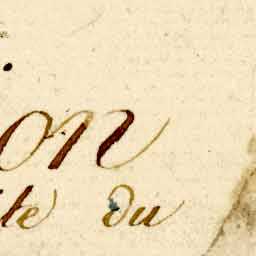 on
ite du